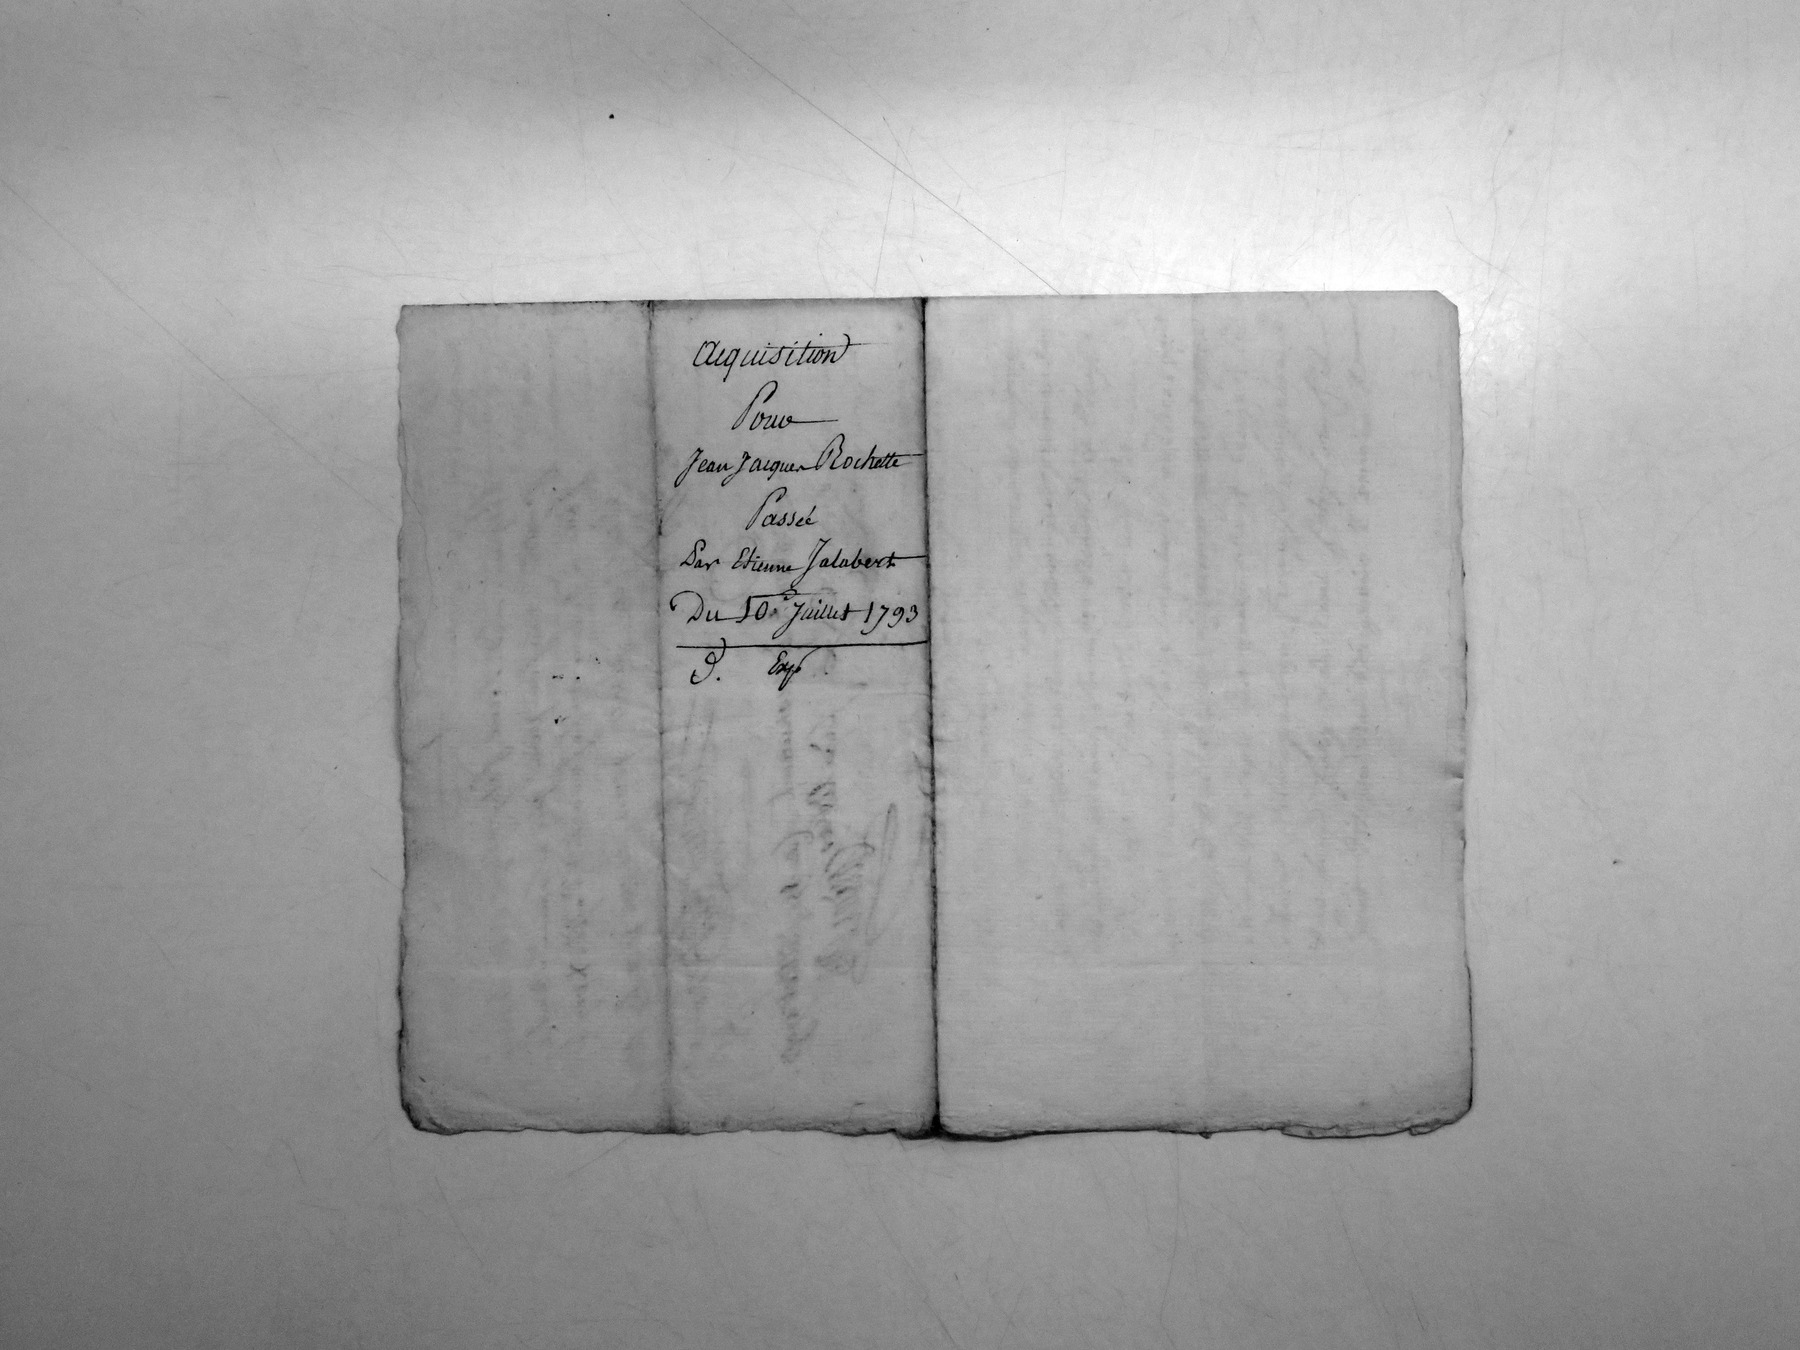 Acquisition
Pour
Jean Jacques Rochette
Passée
Par Etienne Jalabert
Du 10e Juillet 1793
Exp